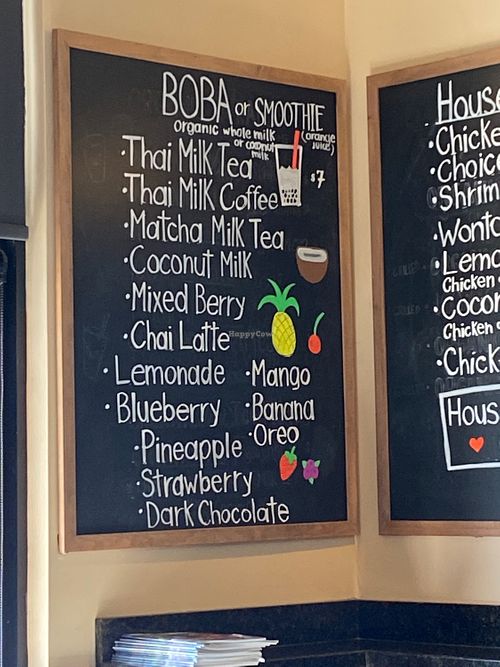 BOBA or SMOOTHIE
organic whole milk (orange
or coconut juice)
milk
$7
·Thai Milk Tea
·Thai Milk Coffee
·Matcha Milk Tea
·Coconut Milk
·Mixed Berry
·Chai Latte
HappyCow
·Lemonade ·Mango
·Blueberry ·Banana
·Oreo
·Pineapple
·Strawberry
·Dark Chocolate
House
·Chicke
·Choice
·Shrim
·Wonto
·Lemo
Chicken
·Cocon
Chicken
·Chick
Hous